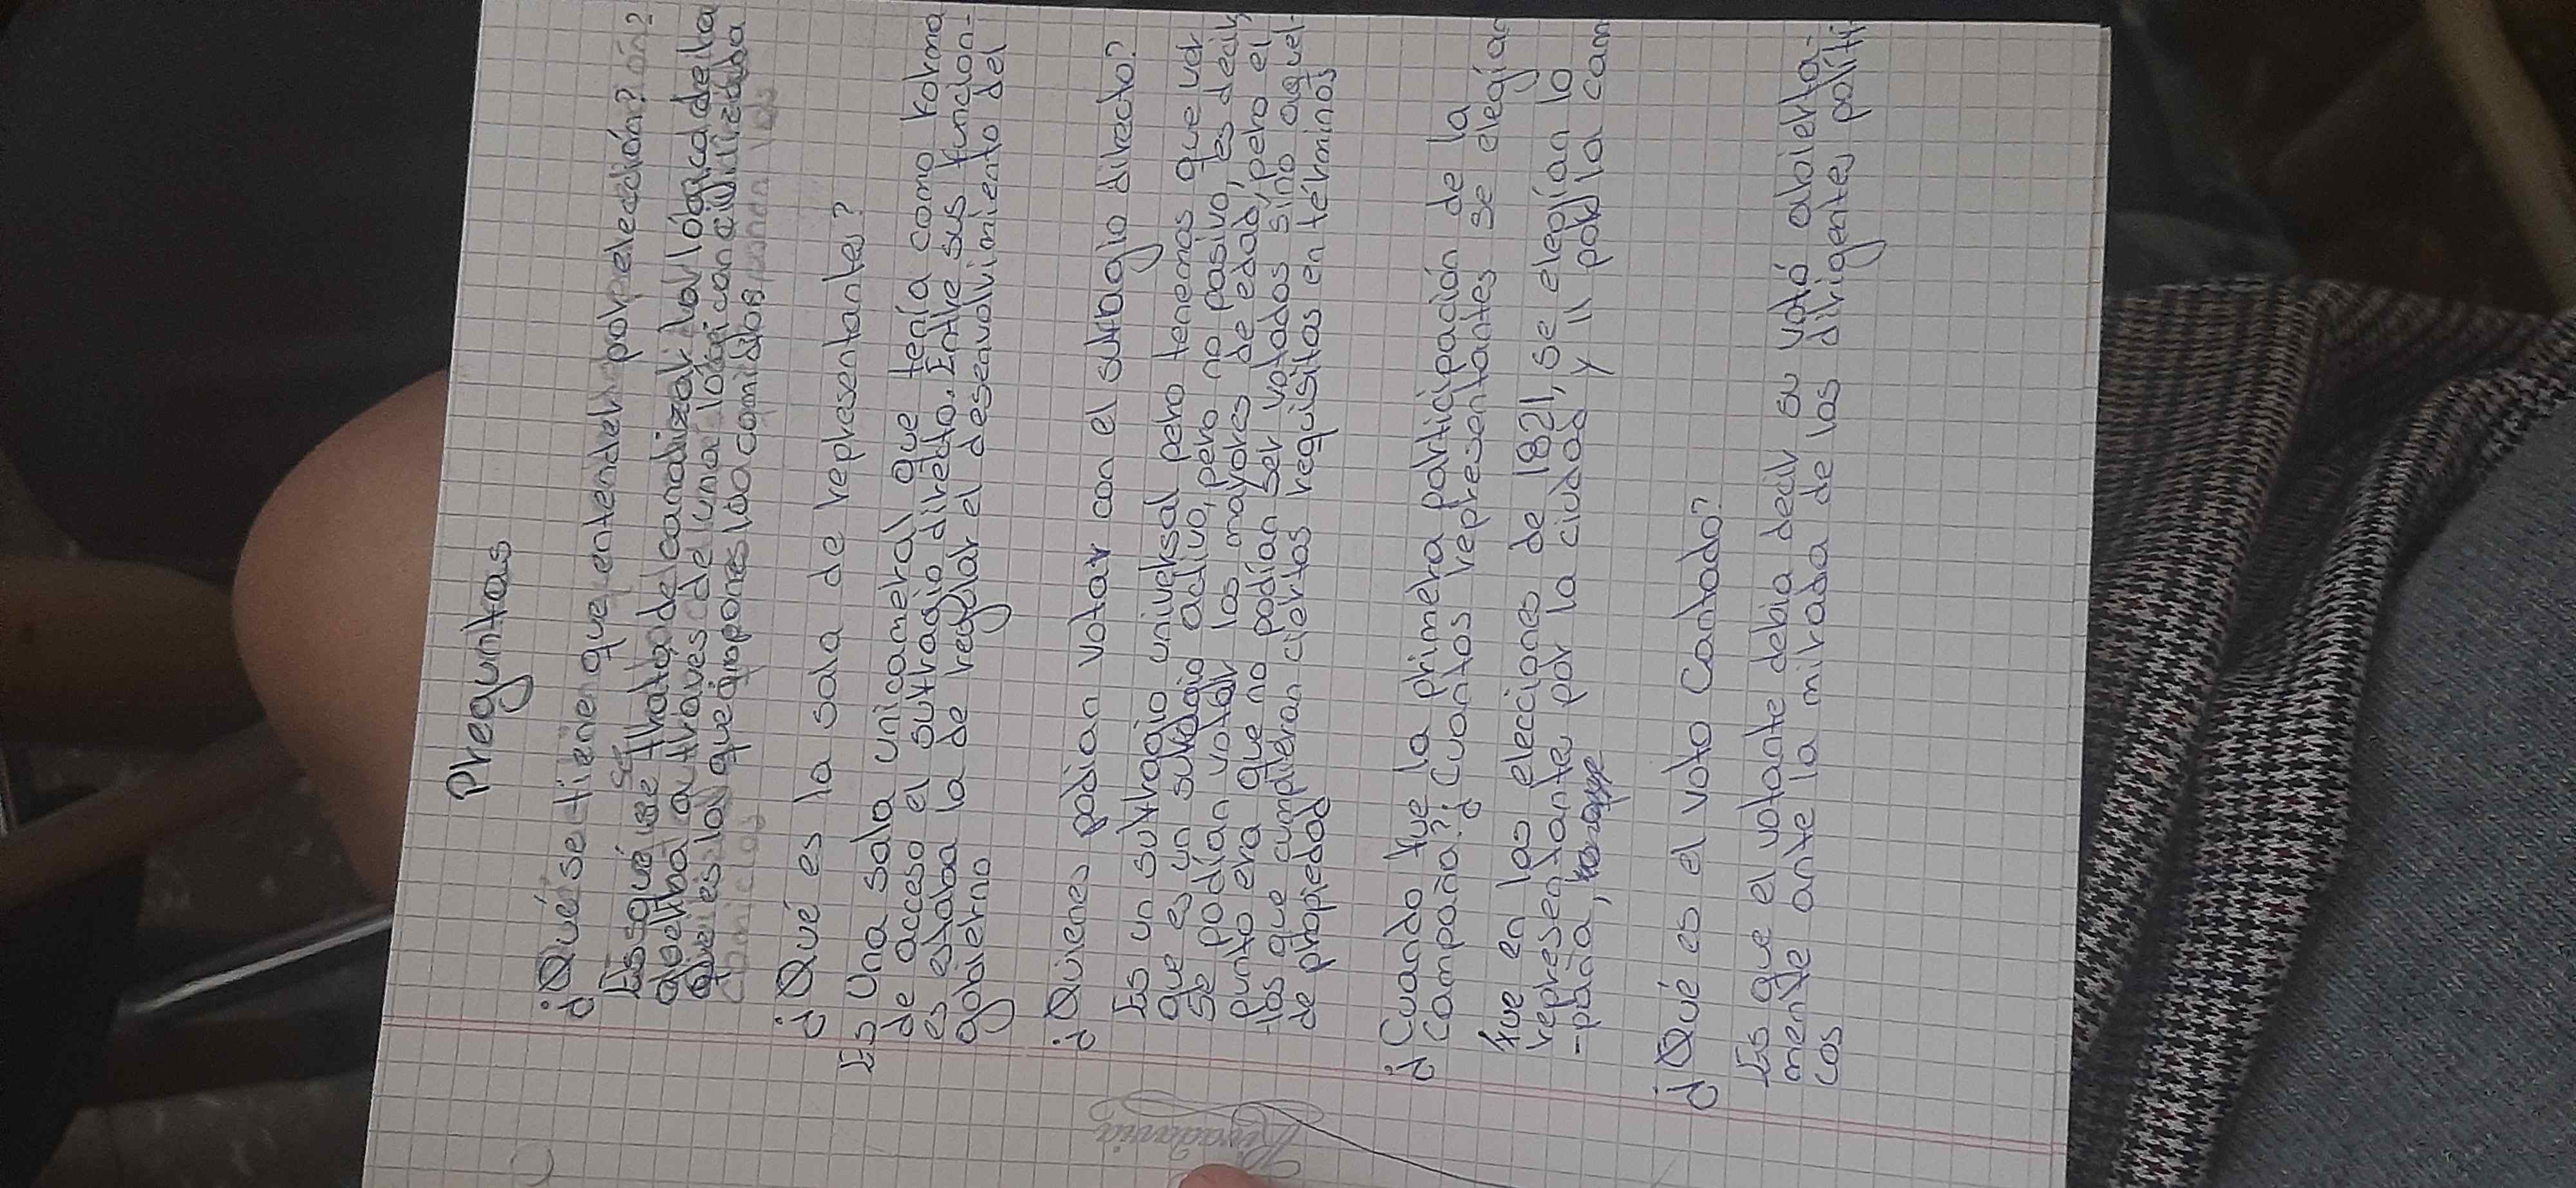 Preguntas
¿Qué se tiene que entender por elección?
Es que se trató de canalizar la lógica de la
a través de una lógica
que es la que
¿Qué es la sala de representantes?
Es Una sala unicameral que tenía como forma
de acceso el sufragio directo. Entre sus funcion-
es estaba la de regular el desenvolvimiento del
gobierno
¿Quienes podian votar con el sufragio directo?
Es un sufragio universal pero tenemos que ver
que es un sufragio activo, pero no pasivo, es decir,
se podían votar los mayores de edad, pero el
punto era que no podían ser votados sino aquel-
los que cumplieran ciertos requisitos en términos
de propiedad
¿Cuando fue la primera participación de la
campaña? ¿Cuantos representantes se elegían
fue en las elecciones de 1821, se elegían 10
representante por la ciudad y 11 por la cam
-paña,
¿Qué es el voto Cantado?
Es que el votante debia decir su votó abierta-
mente ante la mirada de los dirigentes politi
cos
Rivadavia